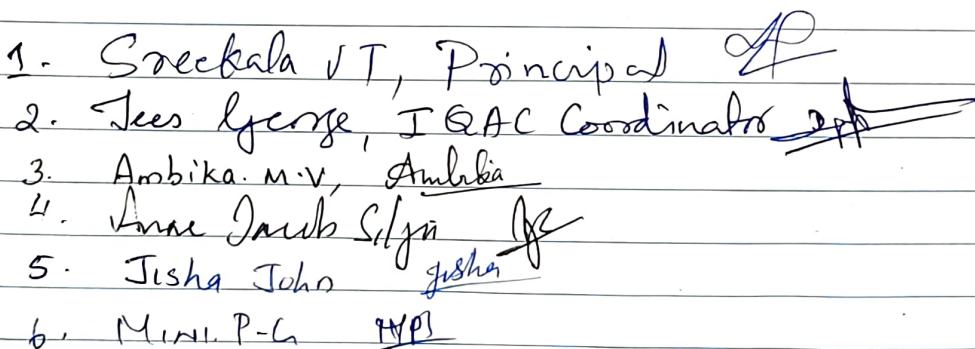 1. Sreekala V T, Principal
2. Jees George, IQAC Coordinator
3. Ambika. M.V, Ambika
4. Anne Jacob
5. Jisha John jisha
6. MINI. P-G